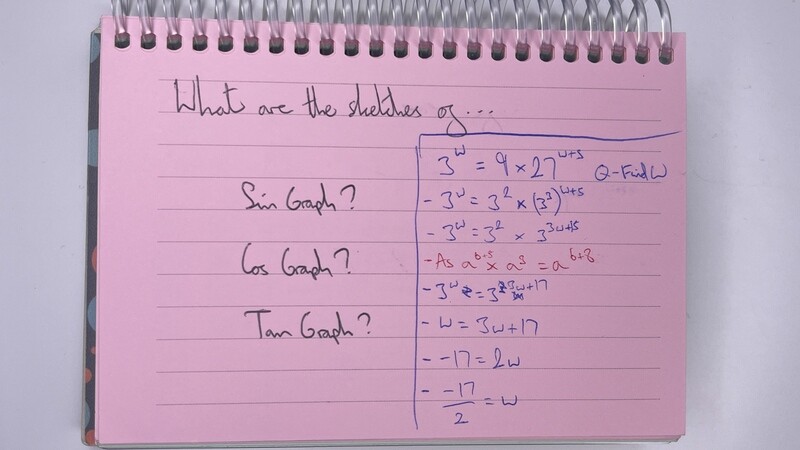 What are the sketches of...
Sin Graph?
Cos Graph?
Tan Graph?
3^w = 9 × 27^(w+5) Q-Find W
- 3^w = 3^2 × (3^3)^(w+5)
- 3^w = 3^2 × 3^(3w+15)
- As a^(b+5) × a^3 = a^(b+8)
- 3^w = 3^(3w+17)
- w = 3w+17
- -17 = 2w
- -17/2 = w